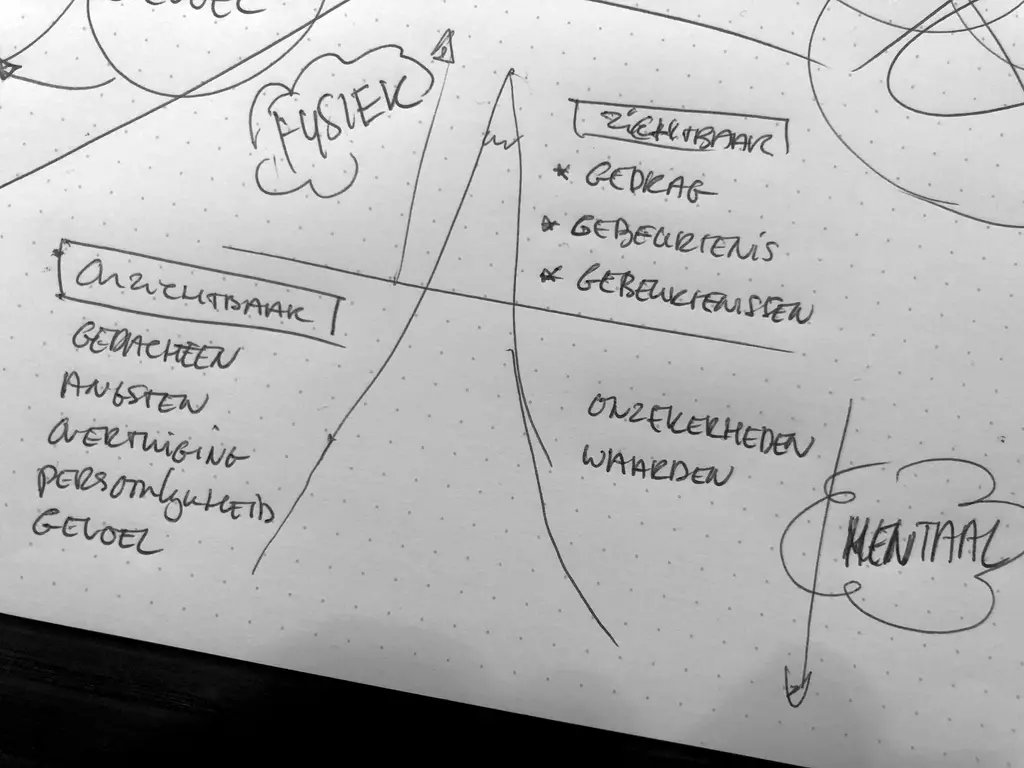 GEVOEL
FYSIEK
ZICHTBAAR
* GEDRAG
* GEBEURTENIS
* GEBEURTENISSEN
ONZICHTBAAR
GEDACHTEN
ANGSTEN
OVERTUIGING
PERSOONLIJKHEID
GEVOEL
ONZEKERHEDEN
WAARDEN
MENTAAL